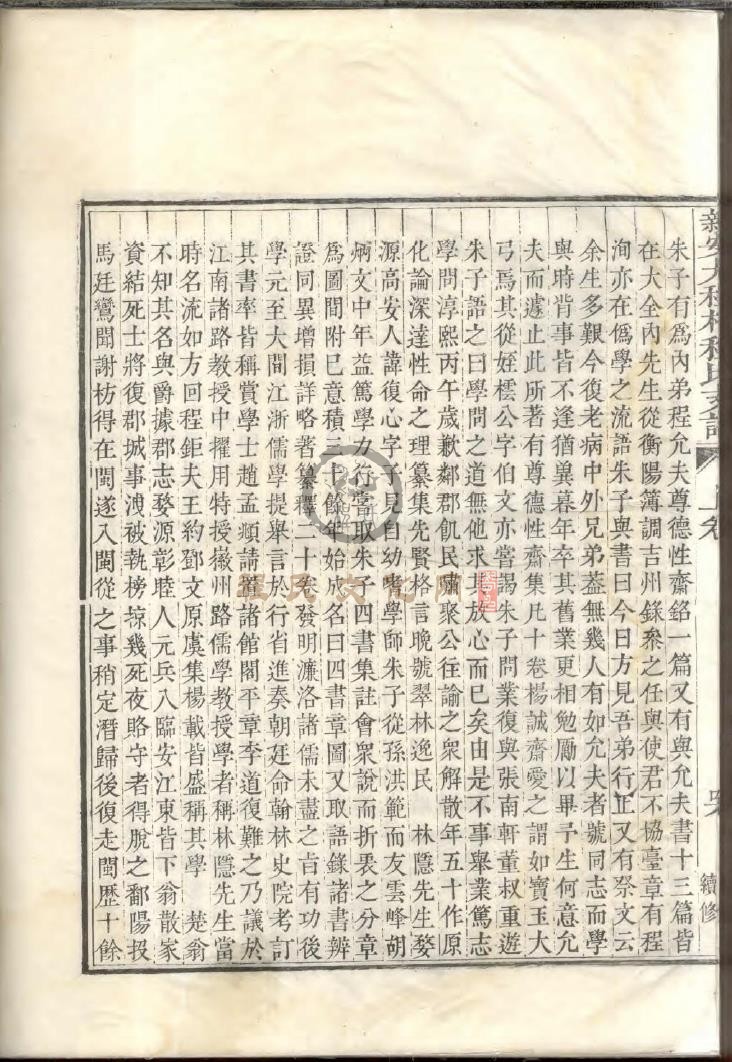 新安大程村程氏支譜
上卷
續修
朱子有爲內弟程允夫尊德性齋銘一篇又有與允夫書十三篇皆
在大全內先生從衡陽簿調吉州錄叅之任與使君不協臺章有程
洵亦在僞學之流語朱子與書曰今日方見吾弟行止又有祭文云
余生多艱今復老病中外兄弟葢無幾人有如允夫者號同志而學
與時背事皆不逢猶兾暮年卒其舊業更相勉勵以畢予生何意允
夫而遽止此所著有尊德性齋集凡十卷楊誠齋愛之謂如寶玉大
弓焉其從姪櫄公字伯文亦嘗謁朱子問業復與張南軒董叔重遊
朱子語之曰學問之道無他求其放心而已矣由是不事舉業篤志
學問淳熙丙午歲歉鄰郡飢民嘯聚公徃諭之衆解散年五十作原
化論深達性命之理纂集先賢格言晚號翠林逸民　林隱先生婺
源高安人諱復心字子見自幼嗜學師朱子從孫洪範而友雲峰胡
炳文中年益篤學力行嘗取朱子四書集註會衆說而折衷之分章
爲圖間附已意積三十餘年始成名曰四書章圖又取語錄諸書辨
證同異增損詳略著纂釋二十卷發明濂洛諸儒未盡之旨有功後
學元至大間江浙儒學提舉言於行省進奏朝廷命翰林史院考訂
其書率皆稱賞學士趙孟頫請置諸館閣平章李道復難之乃議於
江南諸路教授中擢用特授徽州路儒學教授學者稱林隱先生當
時名流如方回程鉅夫王約鄧文原虞集楊載皆盛稱其學　楚翁
不知其名與爵據郡志婺源彰睦人元兵入臨安江東皆下翁散家
資結死士將復郡城事洩被執榜掠幾死夜賂守者得脫之鄱陽投
馬廷鸞聞謝枋得在閩遂入閩從之事稍定潛歸後復走閩歷十餘